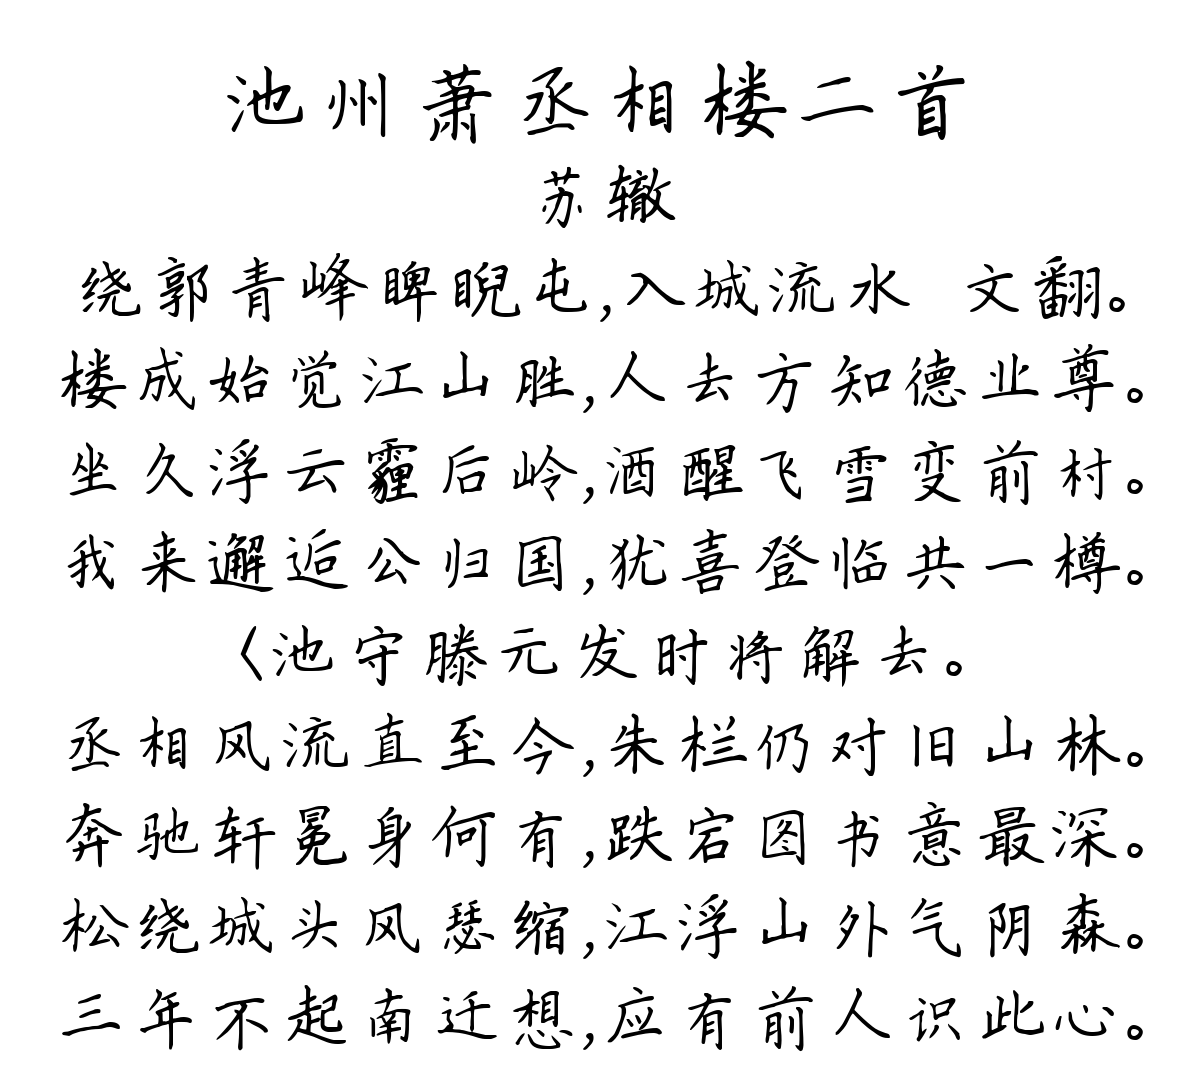 池州萧丞相楼二首
苏辙
绕郭青峰睥睨屯,入城流水 文翻。
楼成始觉江山胜,人去方知德业尊。
坐久浮云霾后岭,酒醒飞雪变前村。
我来邂逅公归国,犹喜登临共一樽。
〈池守滕元发时将解去。
丞相风流直至今,朱栏仍对旧山林。
奔驰轩冕身何有,跌宕图书意最深。
松绕城头风瑟缩,江浮山外气阴森。
三年不起南迁想,应有前人识此心。